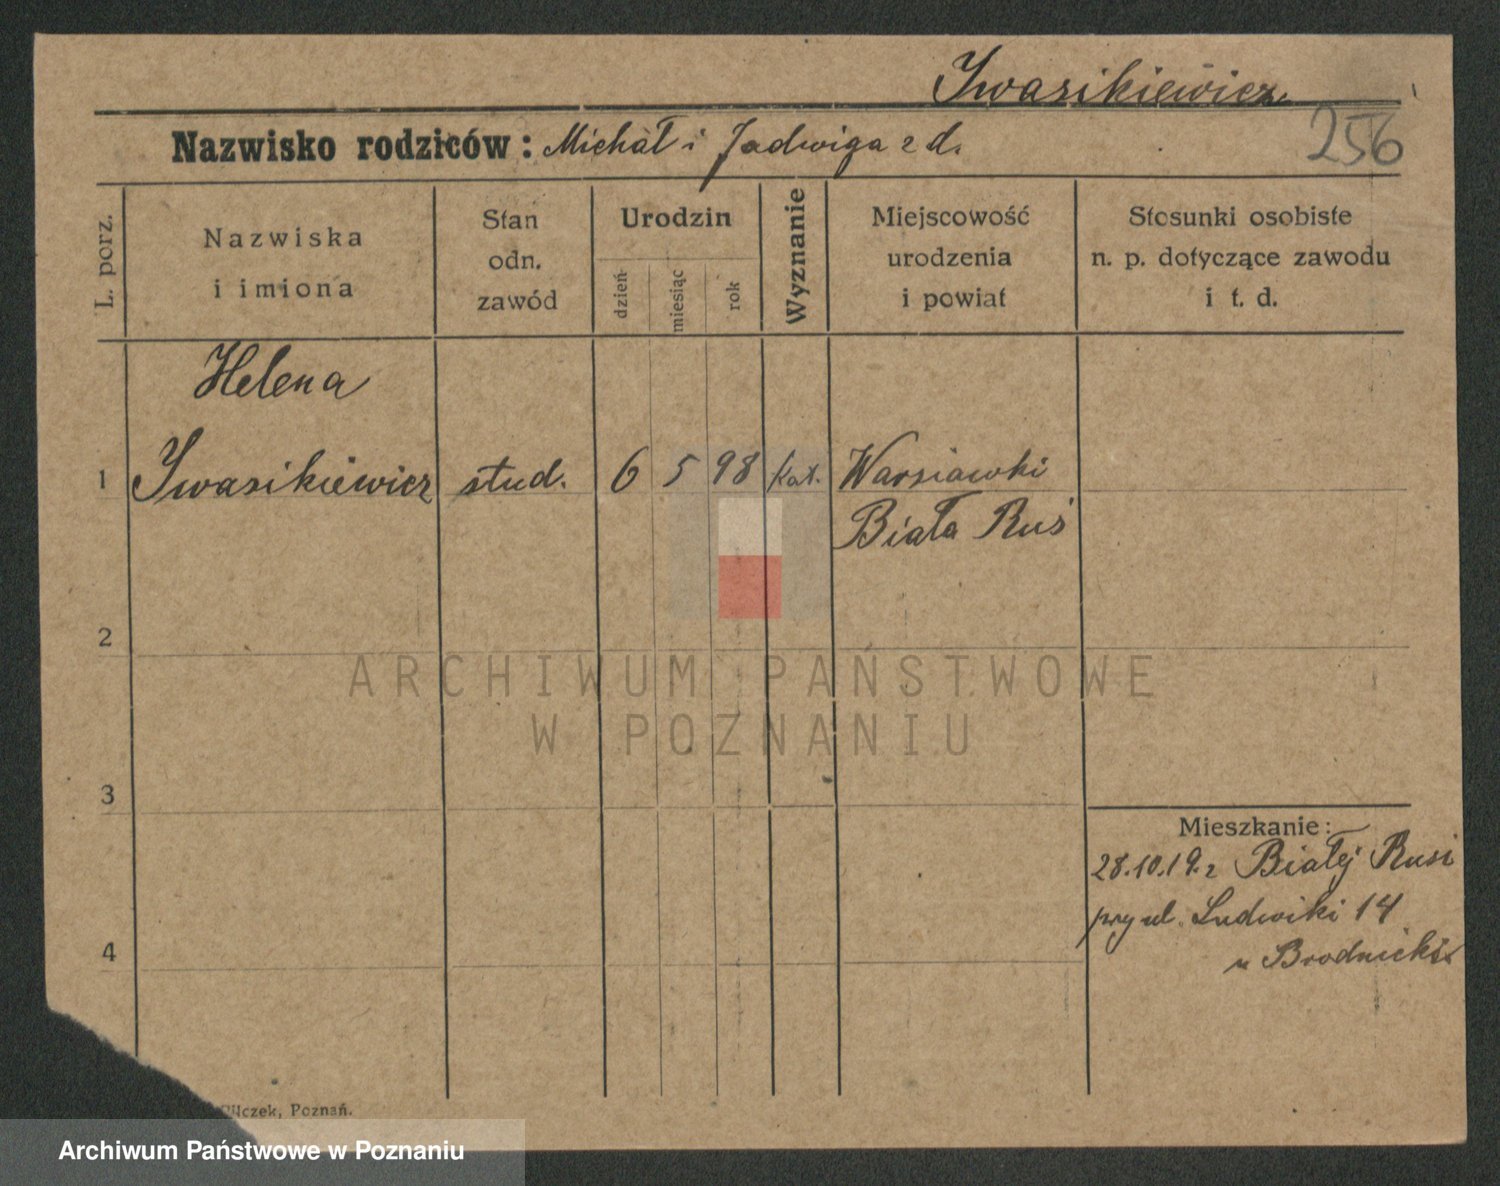 Iwasikiewicz
Nazwisko rodziców: Michał i Jadwiga z d.
256
L. porz.
Nazwiska
i imiona
Stan
odn.
zawód
Urodzin
dzień
miesiąc
rok
Wyznanie
Miejscowość
urodzenia
i powiat
Stosunki osobiste
n. p. dotyczące zawodu
i t. d.
Helena
1 Iwasikiewicz stud. 6 5 98 kat. Warsiawki
Biała Ruś
2
ARCHIWUM PAŃSTWOWE
W POZNANIU
3
Mieszkanie:
28.10.19. z Białej Rusi
przy ul. Ludwiki 14
u Brodnickis
4
czek, Poznań.
Archiwum Państwowe w Poznaniu